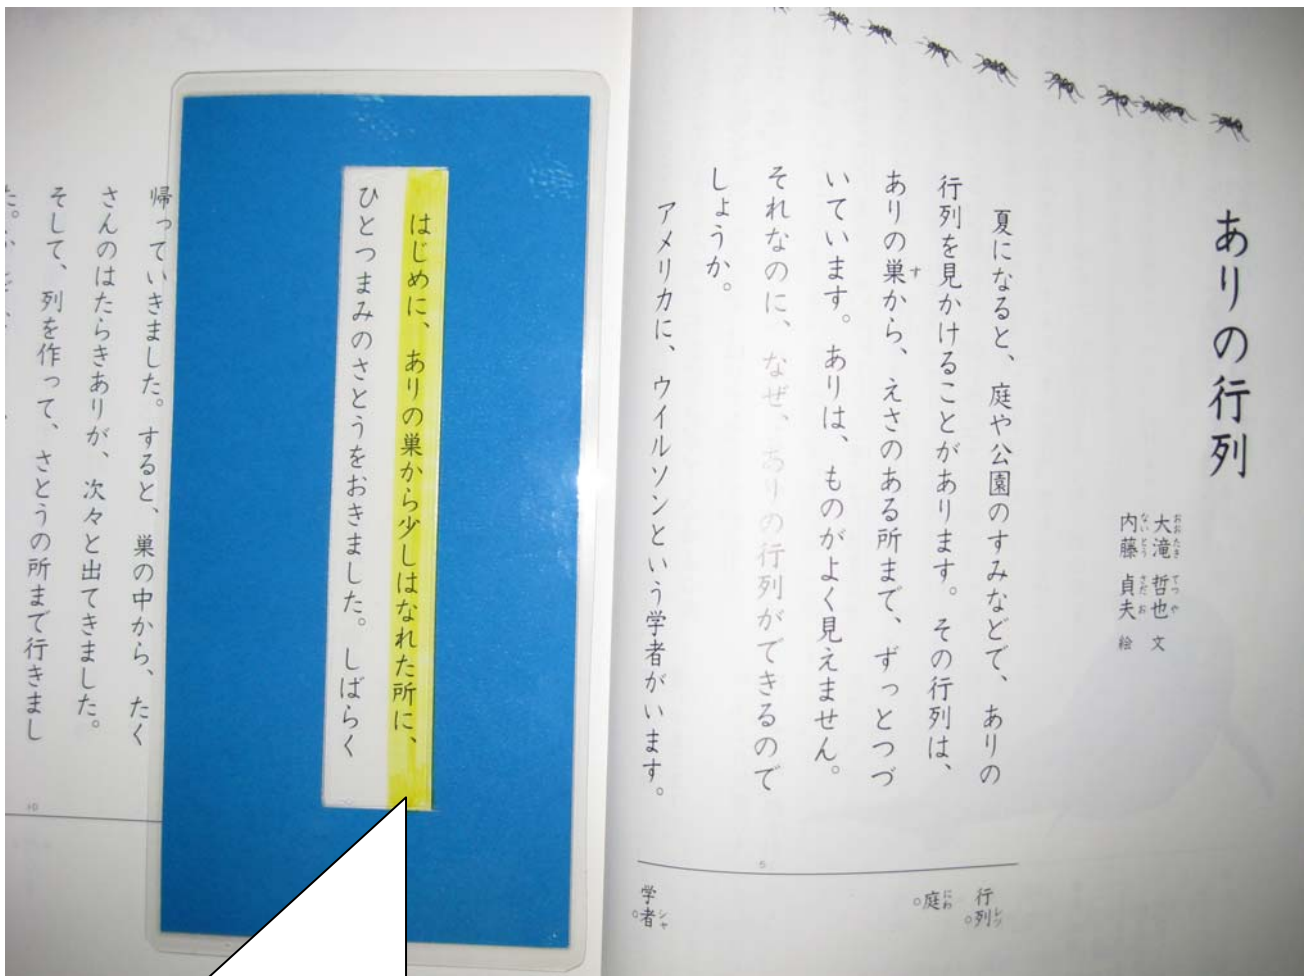 ありの行列
大滝 哲也 文
おおたき てつや
内藤 貞夫 絵
ないとう さだお
夏になると、庭や公園のすみなどで、ありの
行列を見かけることがあります。その行列は、
ありの巣から、えさのある所まで、ずっとつづ
す
いています。ありは、ものがよく見えません。
それなのに、なぜ、ありの行列ができるので
しょうか。
アメリカに、ウイルソンという学者がいます。
行列
レツ
庭
にわ
学者
シャ
はじめに、ありの巣から少しはなれた所に、
ひとつまみのさとうをおきました。しばらく
帰っていきました。すると、巣の中から、たく
さんのはたらきありが、次々と出てきました。
そして、列を作って、さとうの所まで行きまし
10